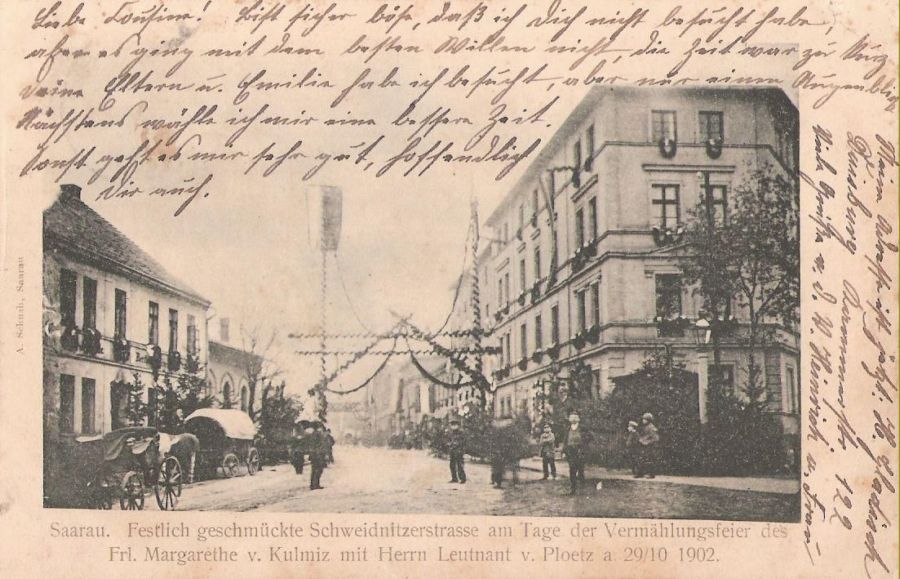 Liebe Cousine! Bist sicher böse, daß ich Dich nicht besucht habe,
aber es ging mit dem besten Willen nicht, die Zeit war zu kurz
Deine Eltern u. Emilie habe ich besucht, aber nur einen Augenblick
Nächstens wähle ich mir eine bessere Zeit.
Sonst geht es mir sehr gut, hoffendlich
Dir auch.
Meine Adr. ist jetzt.
Duisburg 122
Viele Grüße a. d. W. Heinrich u. Frau
A. Schnab, Saarau
Saarau. Festlich geschmückte Schweidnitzerstrasse am Tage der Vermählungsfeier des
Frl. Margarethe v. Kulmiz mit Herrn Leutnant v. Ploetz a 29/10 1902.